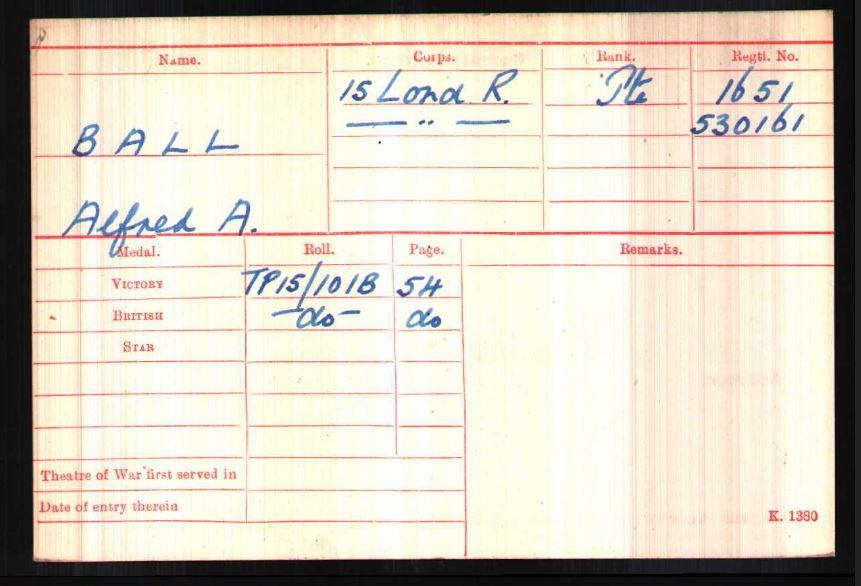 Name. Corps. Rank. Regtl. No.
15 Lond R. Pte 1651
— " — 530161
BALL
Alfred A.
Medal. Roll. Page. Remarks.
VICTORY TP15/101B 54
BRITISH -do- do
STAR
Theatre of War first served in
Date of entry therein
K. 1380